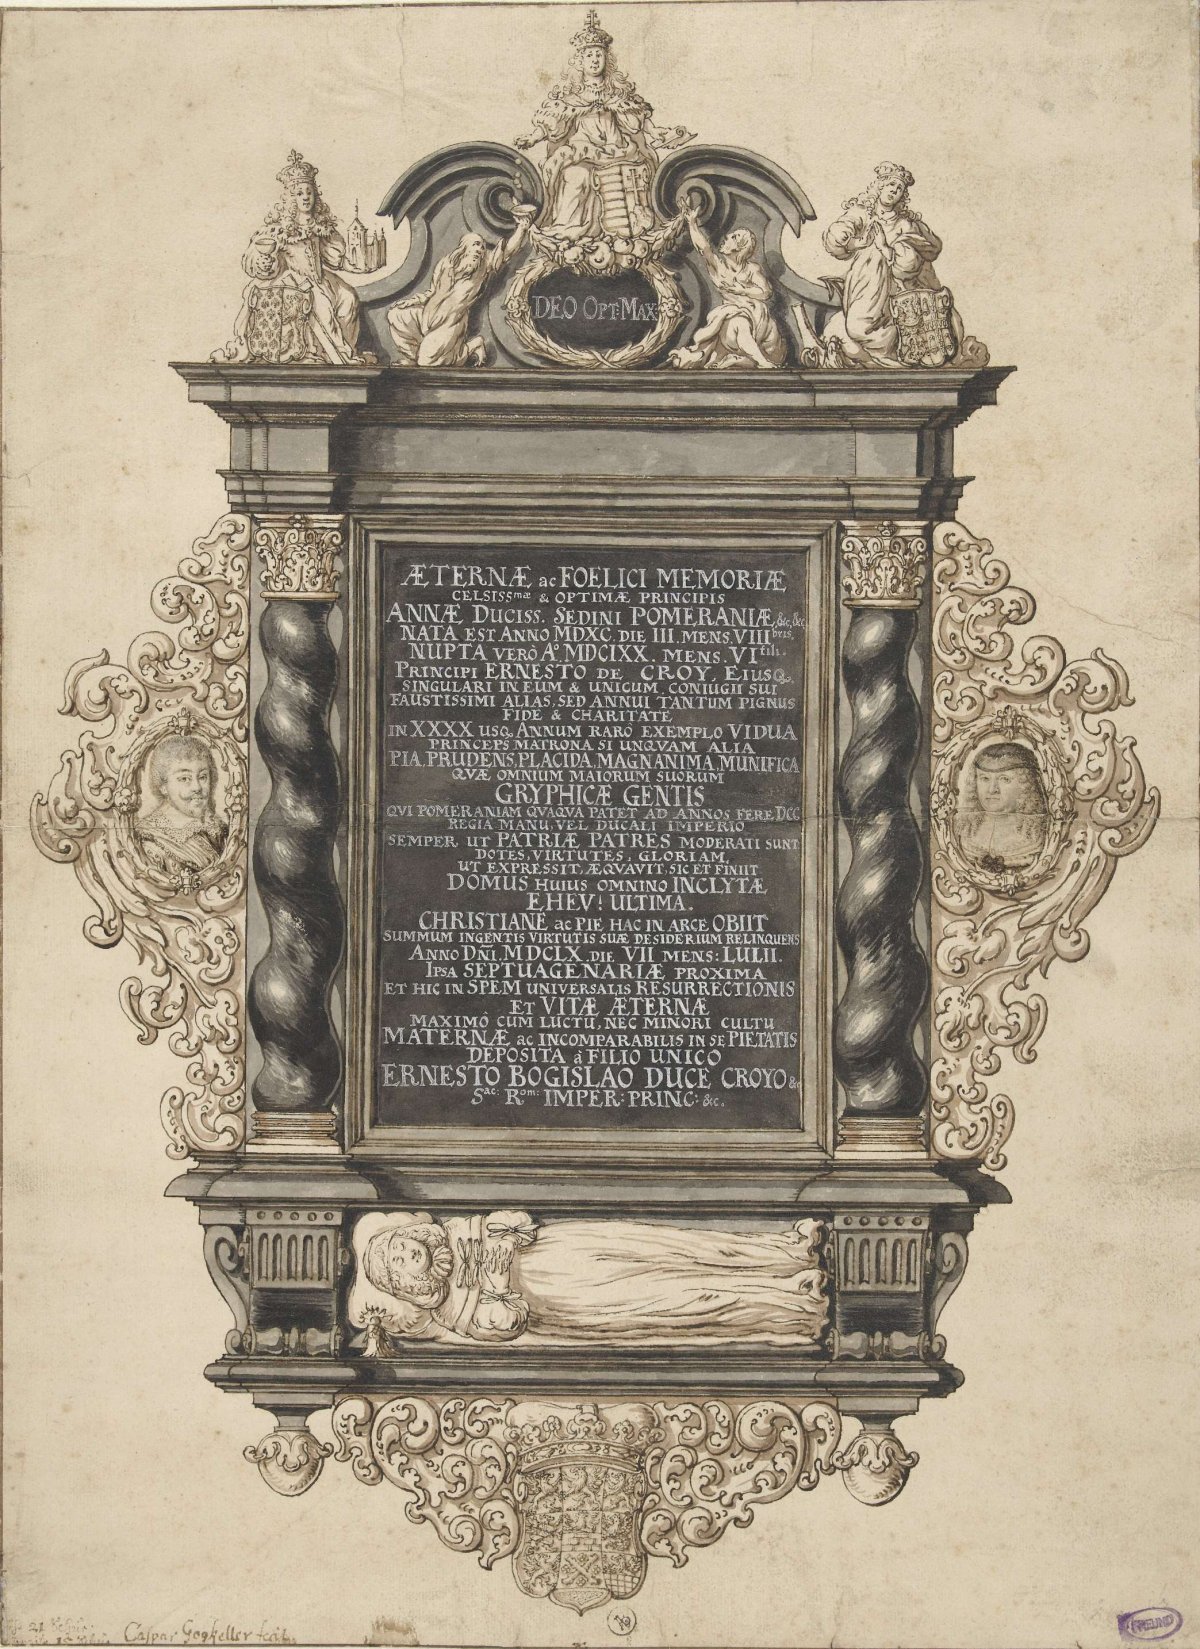 DEO OPT: MAX:
ÆTERNÆ ac FOELICI MEMORIÆ
CELSISSmæ & OPTIMÆ PRINCIPIS
ANNÆ DUCISS. SEDINI POMERANIÆ, &c, &c.
NATA EST ANNO MDXC. DIE III. MENS. VIIIbris,
NUPTA VERÒ Ao. MDCIXX. MENS. VItili.
PRINCIPI ERNESTO DE CROY, EIUSQ,
SINGULARI IN EUM & UNICUM, CONIUGII SUI
FAUSTISSIMI ALIAS, SED ANNUI TANTUM PIGNUS
FIDE & CHARITATE
IN XXXX USQ, ANNUM RARO EXEMPLO VIDUA
PRINCEPS MATRONA SI UNQVAM ALIA
PIA, PRUDENS, PLACIDA, MAGNANIMA, MUNIFICA
QVÆ OMNIUM MAIORUM SUORUM
GRYPHICÆ GENTIS
QUI POMERANIAM QVAQVA PATET AD ANNOS FERE DCC
REGIA MANU, VEL DUCALI IMPERIO
SEMPER UT PATRIÆ PATRES MODERATI SUNT
DOTES, VIRTUTES, GLORIAM,
UT EXPRESSIT, ÆQVAVIT, SIC ET FINIIT
DOMUS HUIUS OMNINO INCLYTÆ
EHEV! ULTIMA.
CHRISTIANE ac PIE HAC IN ARCE OBIIT
SUMMUM INGENTIS VIRTUTIS SUÆ DESIDERIUM RELINQUENS
ANNO DÑI. MDCLX. DIE VII MENS: LULII.
IPSA SEPTUAGENARIÆ PROXIMA
ET HIC IN SPEM UNIVERSALIS RESURRECTIONIS
ET VITÆ ÆTERNÆ
MAXIMO CUM LUCTU, NEC MINORI CULTU
MATERNÆ ac INCOMPARABILIS IN SE PIETATIS
DEPOSITA à FILIO UNICO
ERNESTO BOGISLAO DUCE CROYO &c
Sac: Rom: IMPER: PRINC: &c.
Caspar Gogkeller fecit
FREUND